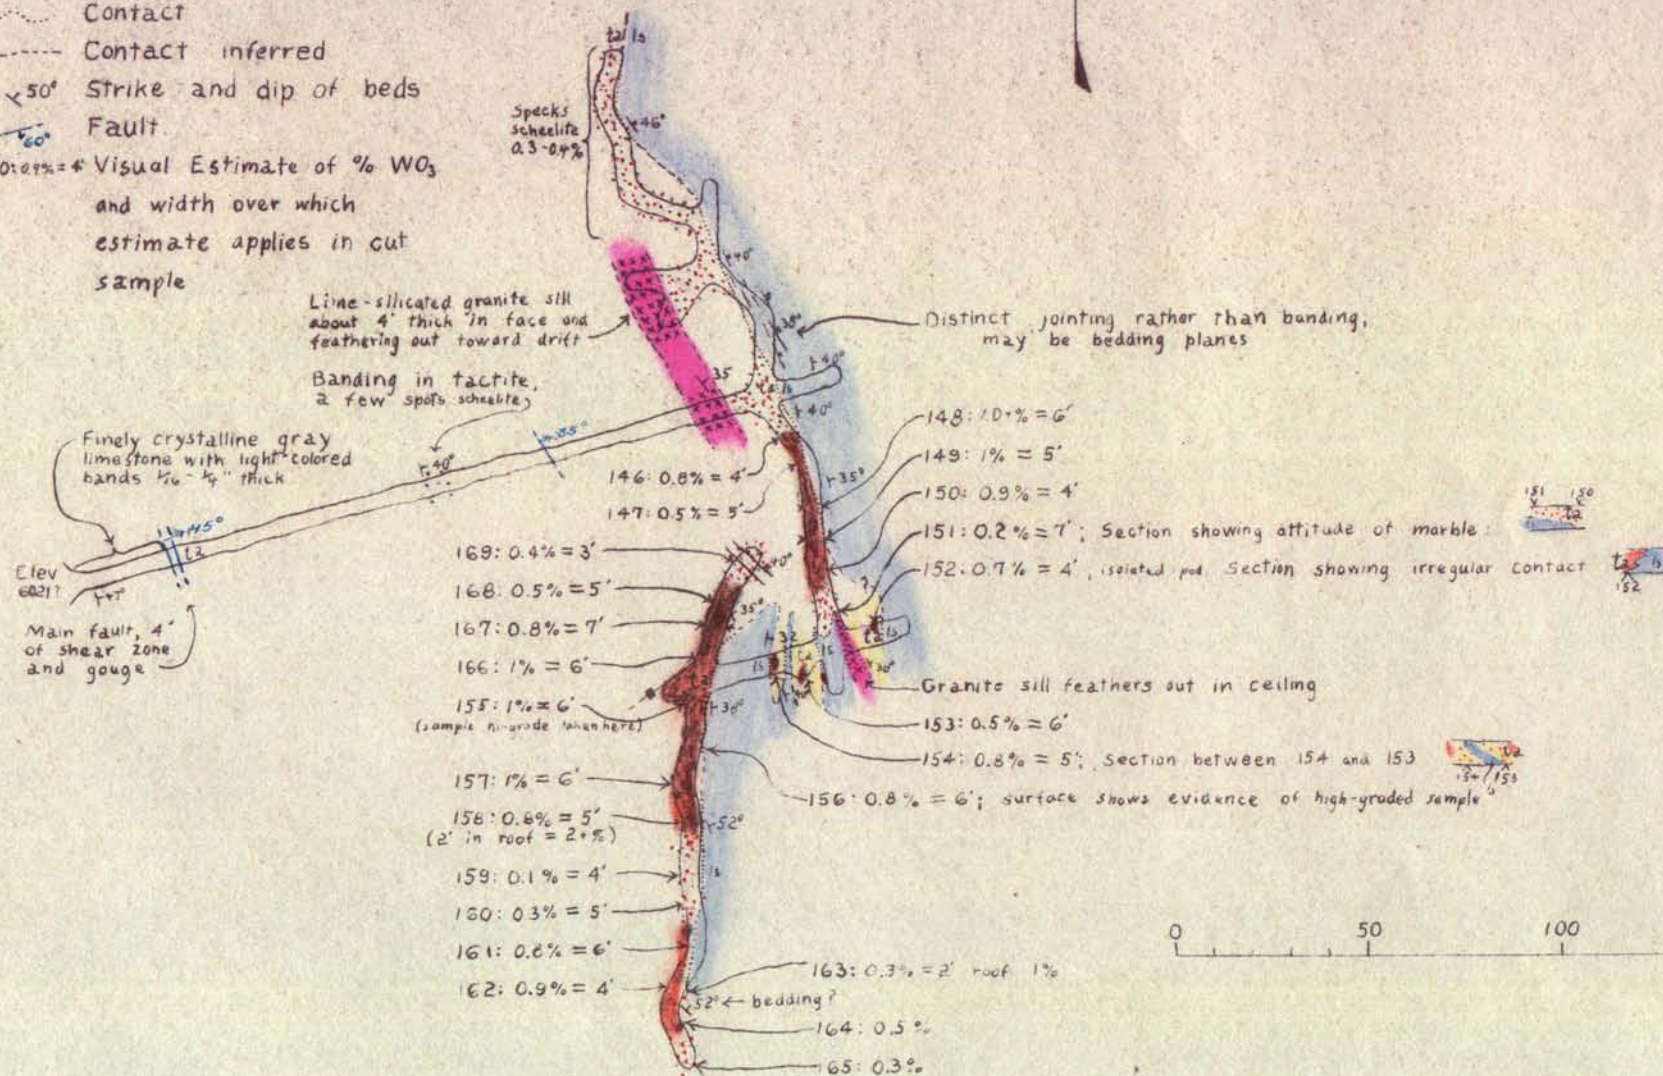 Contact
Contact inferred
50° Strike and dip of beds
60° Fault
0:0.9%=4' Visual Estimate of % WO₃
and width over which
estimate applies in cut
sample
ta ls
Specks
scheelite
0.3-0.4%
46°
40°
Lime-silicated granite sill
about 4' thick in face and
feathering out toward drift
38°
Distinct jointing rather than banding,
may be bedding planes
Banding in tactite,
a few spots scheelite
35
40°
ls
40°
Finely crystalline gray
limestone with light colored
bands 1/16 - 1/4" thick
40°
85°
45°
Elev
6021?
47°
Main fault, 4'
of shear zone
and gouge
146: 0.8% = 4'
147: 0.5% = 5'
35°
148: 1.0+% = 6'
149: 1% = 5'
150: 0.9% = 4'
151: 0.2% = 7'; Section showing attitude of marble:
151 150
ta
152: 0.7% = 4', isolated pod. Section showing irregular contact
ta ls
152
169: 0.4% = 3'
40°
168: 0.5% = 5'
35°
167: 0.8% = 7'
166: 1% = 6'
155: 1% = 6'
(sample hi-grade taken here)
?
32
ls
ta
ls
ta
ls
30°
Granite sill feathers out in ceiling
153: 0.5% = 6'
154: 0.8% = 5'; Section between 154 and 153
ta
154 153
ls
156: 0.8% = 6'; surface shows evidence of high-graded sample
157: 1% = 6'
158: 0.8% = 5'
(2' in roof = 2+%)
52°
159: 0.1% = 4'
ls
160: 0.3% = 5'
161: 0.8% = 6'
162: 0.9% = 4'
163: 0.3% = 2' roof 1%
52° ← bedding?
164: 0.5%
165: 0.3%
0 50 100